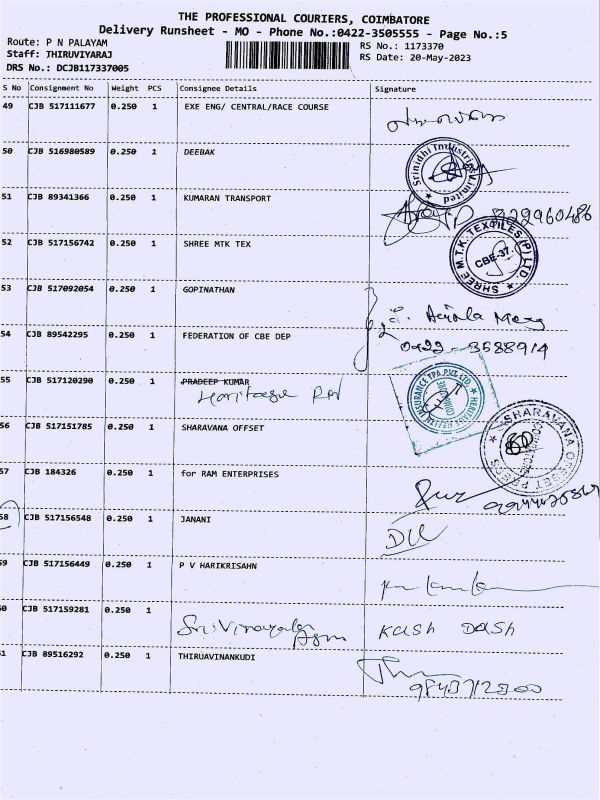 THE PROFESSIONAL COURIERS, COIMBATORE
Delivery Runsheet - MO - Phone No.:0422-3505555 - Page No.:5
Route: P N PALAYAM
Staff: THIRUVIYARAJ
DRS No.: DCJB117337005
RS No.: 1173370
RS Date: 20-May-2023
S No Consignment No Weight PCS Consignee Details Signature
49 CJB 517111677 0.250 1 EXE ENG/ CENTRAL/RACE COURSE
50 CJB 516980589 0.250 1 DEEBAK
Srinidhi Industries Limited
51 CJB 89341366 0.250 1 KUMARAN TRANSPORT
52 CJB 517156742 0.250 1 SHREE MTK TEX
SHREE M.T.K. TEXTILES (P) LTD.
CBE-37.
53 CJB 517092054 0.250 1 GOPINATHAN
54 CJB 89542295 0.250 1 FEDERATION OF CBE DEP
0422 - 3588914
55 CJB 517120290 0.250 1 PRADEEP KUMAR
Heritage
HERITAGE HEALTH INSURANCE TPA PVT LTD
COIMBATORE
56 CJB 517151785 0.250 1 SHARAVANA OFFSET
SHARAVANA OFFSET PRESS
57 CJB 184326 0.250 1 for RAM ENTERPRISES
58 CJB 517156548 0.250 1 JANANI
59 CJB 517156449 0.250 1 P V HARIKRISAHN
60 CJB 517159281 0.250 1
Sri Vinayaga
Kash Dash
61 CJB 89516292 0.250 1 THIRUAVINANKUDI